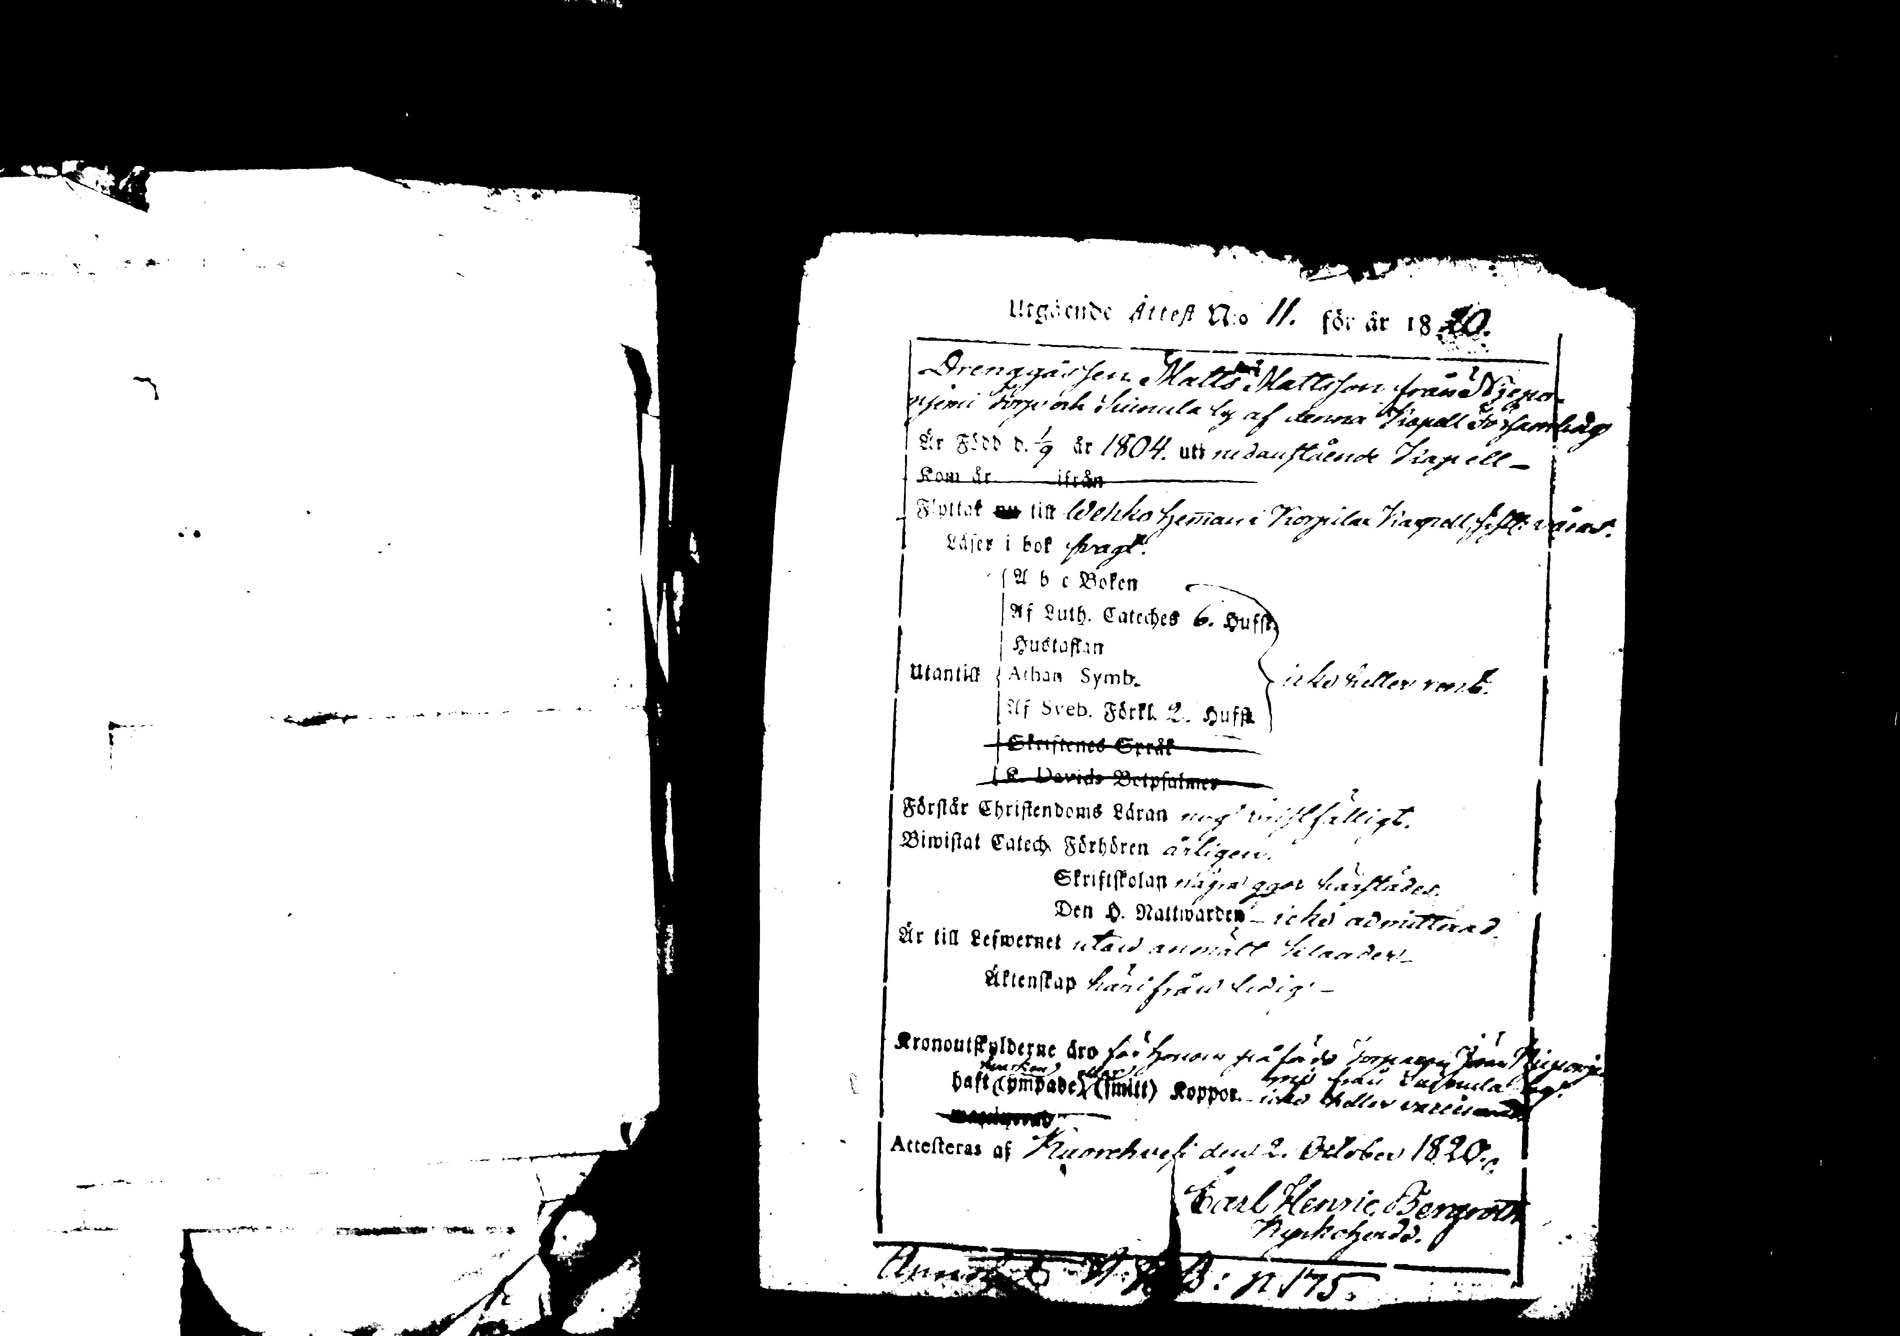 Utgående Attest N:o 11. för år 1820.
Drenggåssen Matts Mattsson från
torp och by af denna Kapell Församling
Är Född d. 1/9 år 1804. uti nedanstående Kapell-
Kom år ifrån
Flyttat nu till Wehko heman i Korpilax Kapell
Läser i bok svagt.
A b c Boken
Af Luth. Cateches 6. Hufst.
Hustaflan
Utantill Athan Symb. icke heller rent.
Af Sveb. Förkl. 2. Hufst.
Skriftenes Språk
K. Davids Botpsalmer
Förstår Christendoms Läran nog enfalligt.
Biwistat Catech. Förhören årligen.
Skriftskolan några ggor härstädes.
Den H. Nattwarden - icke admitterad.
Är till Lefwernet utan anmält klander-
Äktenskap härifrån ledig -
Kronoutskylderne äro för honom på
haft (ympade) (smitt) Koppor. - icke heller vaccinerad
Attesteras af Kuorehvesi den 2. October 1820.
Carl Henric Bergroth
Kyrkoherde.
N. 175.